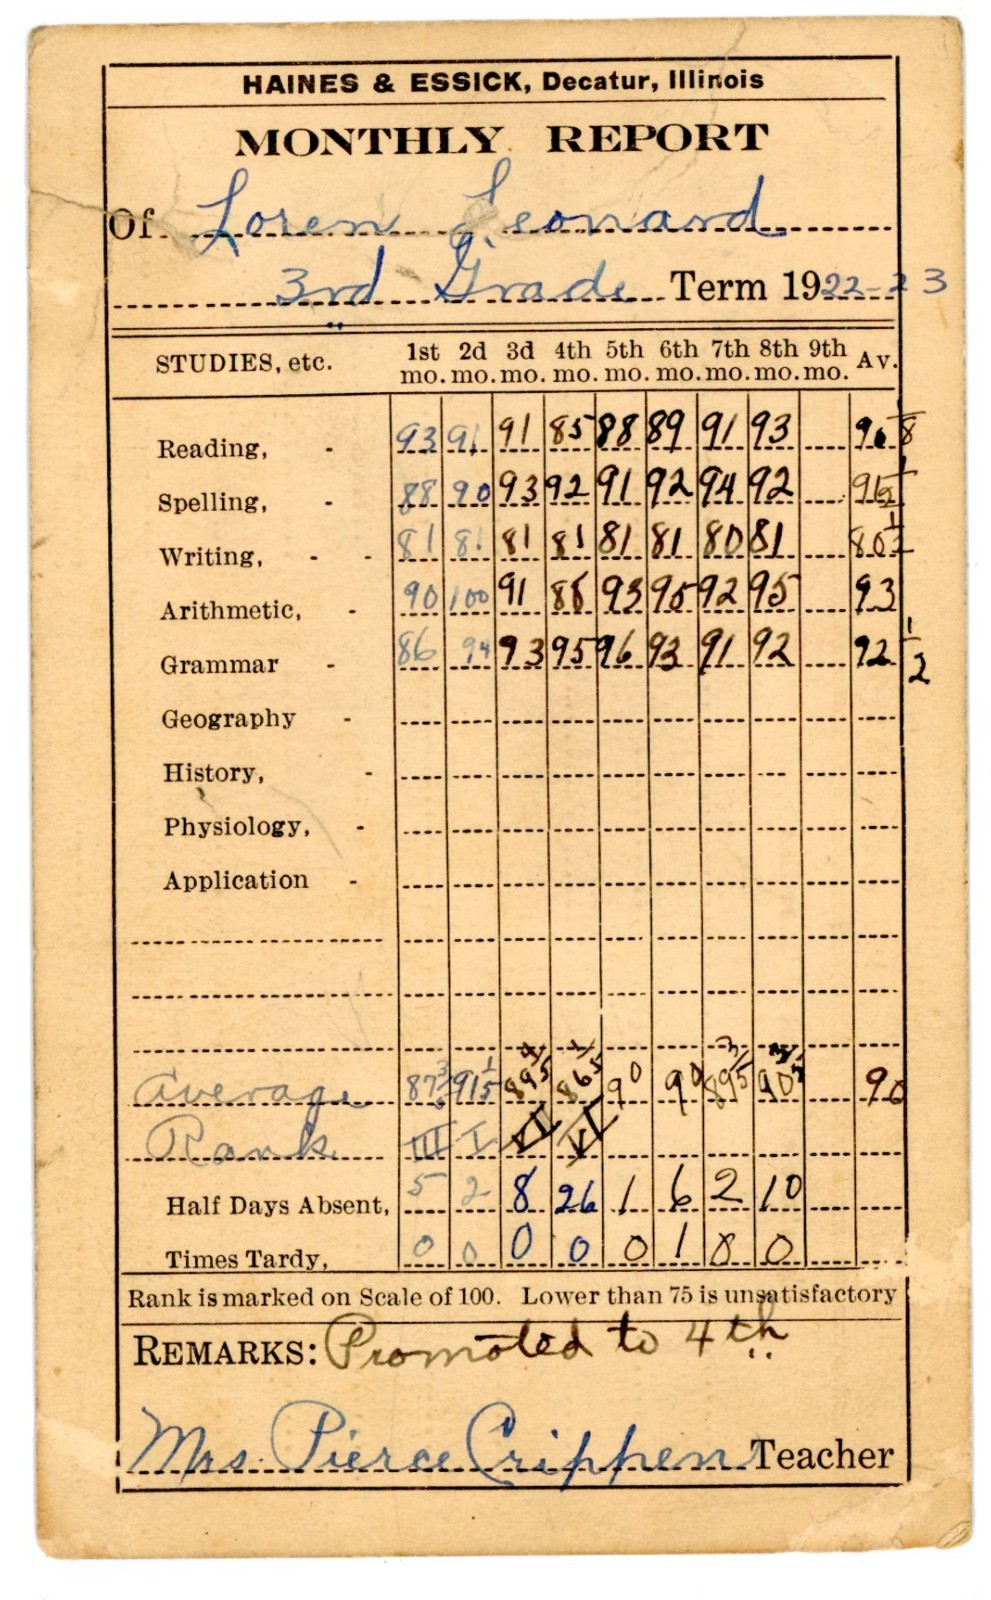 HAINES & ESSICK, Decatur, Illinois
MONTHLY REPORT
Of Loren Leonard
3rd Grade Term 1922-23
STUDIES, etc. 1st mo. 2d mo. 3d mo. 4th mo. 5th mo. 6th mo. 7th mo. 8th mo. 9th mo. Av.
Reading, - 93 91 91 85 88 89 91 93
Spelling, - 88 90 93 92 91 92 94 92 91 1/2
Writing, - - 81 81 81 81 81 81 80 81 80 1/2
Arithmetic, - 90 100 91 93 95 92 95 93
Grammar - 86 94 93 95 96 93 91 92 92 1/2
Geography -
History, -
Physiology, -
Application -
Average 91 1/5 89 4/5 86 1/5 90 90 89 3/5 90
Rank III I VI VI
Half Days Absent, 5 2 8 26 1 6 2 10
Times Tardy, 0 0 0 0 0 1 0 0
Rank is marked on Scale of 100. Lower than 75 is unsatisfactory
REMARKS: Promoted to 4th
Mrs. Pierce Crippen Teacher